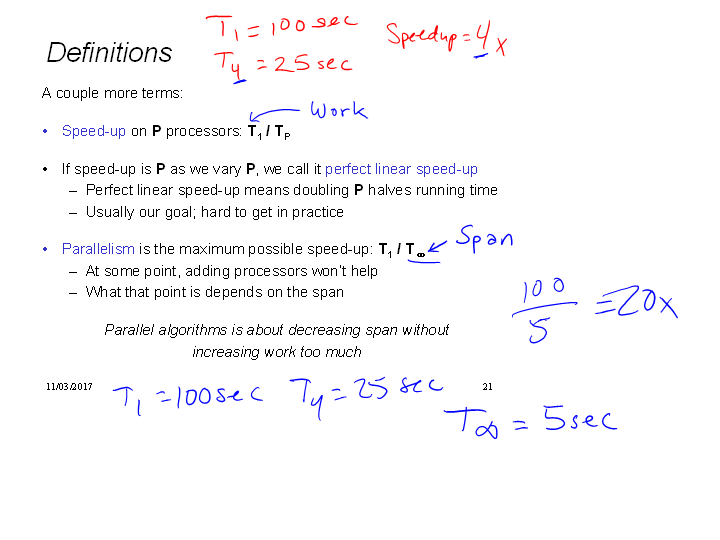 T₁ = 100 sec
Speedup = 4x
T₄ = 25 sec
Definitions
A couple more terms:
Work
• Speed-up on P processors: T₁ / Tₚ
• If speed-up is P as we vary P, we call it perfect linear speed-up
– Perfect linear speed-up means doubling P halves running time
– Usually our goal; hard to get in practice
Span
• Parallelism is the maximum possible speed-up: T₁ / T∞
– At some point, adding processors won't help
– What that point is depends on the span
100
5
= 20x
Parallel algorithms is about decreasing span without
increasing work too much
11/03/2017
21
T₁ = 100 sec T₄ = 25 sec
T∞ = 5 sec